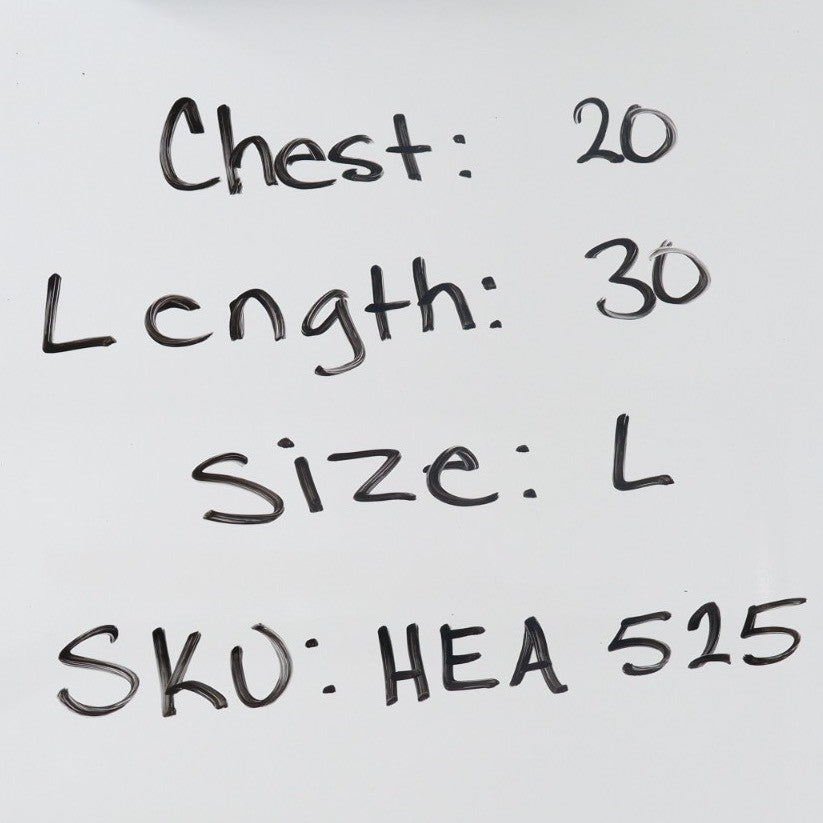 Chest: 20
Length: 30
Size: L
SKU: HEA 525